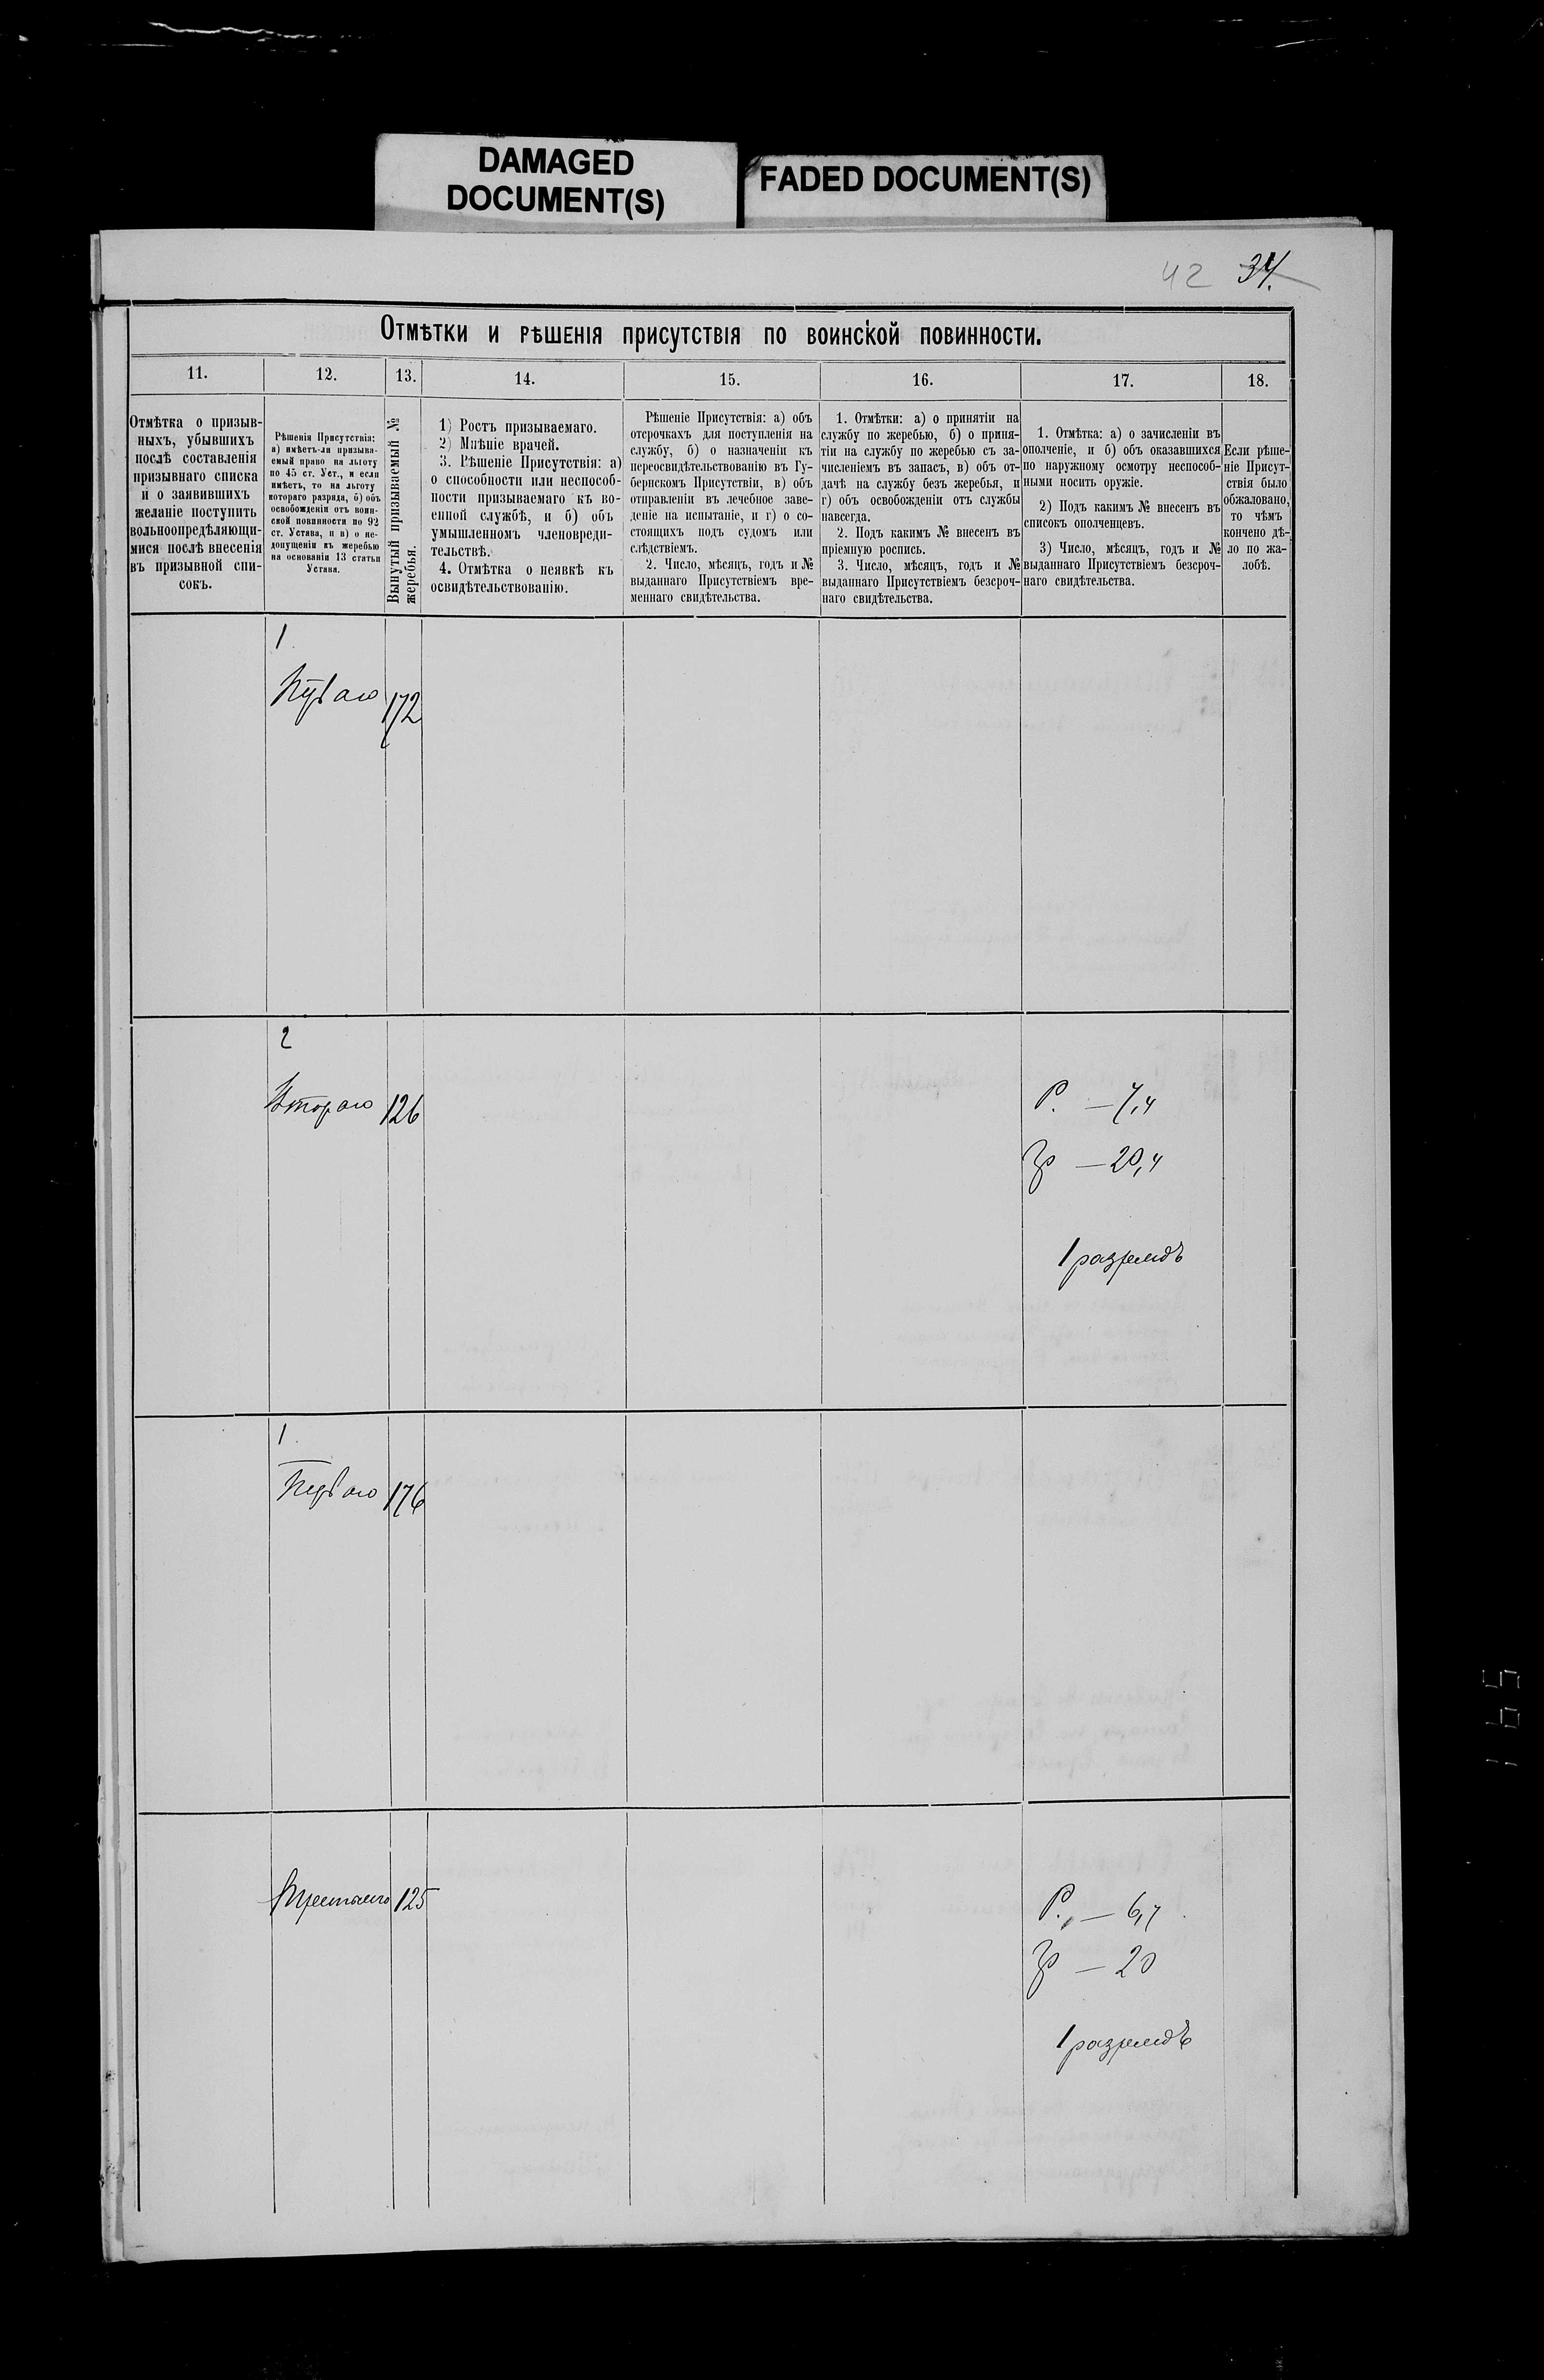 DAMAGED
DOCUMENT(S)
FADED DOCUMENT(S)
42 34.
Отмѣтки и рѣшенія присутствія по воинской повинности.
11.
12.
13.
14.
15.
16.
17.
18.
Отмѣтка о призыв-
ныхъ, убывшихъ
послѣ составленія
призывнаго списка
и о заявившихъ
желаніе поступить
вольноопредѣляющи-
мися послѣ внесенія
въ призывной спи-
сокъ.
Рѣшенія Присутствія:
а) имѣетъ-ли призыва-
емый право на льготу
по 45 ст. Уст., и если
имѣетъ, то на льготу
котораго разряда, б) объ
освобожденіи отъ воин-
ской повинности по 92
ст. Устава, и в) о не-
допущеніи къ жеребью
на основаніи 13 статьи
Устава.
Вынутый призываемый №
жеребья.
1) Ростъ призываемаго.
2) Мнѣніе врачей.
3. Рѣшеніе Присутствія: а)
о способности или неспособ-
ности призываемаго къ во-
енной службѣ, и б) объ
умышленномъ членовреди-
тельствѣ.
4. Отмѣтка о неявкѣ къ
освидѣтельствованію.
Рѣшеніе Присутствія: а) объ
отсрочкахъ для поступленія на
службу, б) о назначеніи къ
переосвидѣтельствованію въ Гу-
бернскомъ Присутствіи, в) объ
отправленіи въ лечебное заве-
деніе на испытаніе, и г) о со-
стоящихъ подъ судомъ или
слѣдствіемъ.
2. Число, мѣсяцъ, годъ и №
выданнаго Присутствіемъ вре-
меннаго свидѣтельства.
1. Отмѣтки: а) о принятіи на
службу по жеребью, б) о приня-
тіи на службу по жеребью съ за-
численіемъ въ запасъ, в) объ от-
дачѣ на службу безъ жеребья, и
г) объ освобожденіи отъ службы
навсегда.
2. Подъ какимъ № внесенъ въ
пріемную роспись.
3. Число, мѣсяцъ, годъ и №
выданнаго Присутствіемъ безсроч-
наго свидѣтельства.
1. Отмѣтка: а) о зачисленіи въ
ополченіе, и б) объ оказавшихся
по наружному осмотру неспособ-
ными носить оружіе.
2) Подъ какимъ № внесенъ въ
списокъ ополченцевъ.
3) Число, мѣсяцъ, годъ и №
выданнаго Присутствіемъ безсроч-
наго свидѣтельства.
Если рѣше-
ніе Присут-
ствія было
обжаловано,
то чѣмъ
кончено дѣ-
ло по жа-
лобѣ.
1
Перваго 172
2
Втораго 126
Р. — 7,4
Гр — 20,4
1 разрядъ
1
Перваго 176
Третьяго 125
Р. — 6,7
Гр — 20
1 разрядъ
165